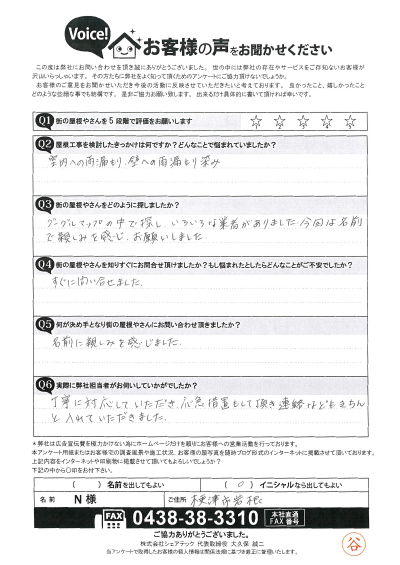 Voice!
お客様の声をお聞かせください
この度は弊社にお問い合わせを頂き誠にありがとうございました。世の中には弊社の存在やサービスをご存知ないお客様が
沢山いらっしゃいます。その方たちに弊社をよく知って頂くためのアンケートにご協力頂けないでしょうか。
お客様のご意見をお聞かせいただき今後の活動に反映させていただきたいと考えております。良かったこと、嬉しかったこと
どのような些細な事でも結構です。是非ご協力お願い致します。出来るだけ具体的に書いて頂ければ幸いです。
Q1 街の屋根やさんを5段階で評価をお願いします ☆ ☆ ☆ ☆ ☆
Q2 屋根工事を検討したきっかけは何ですか？どんなことで悩まれていましたか？
室内への雨漏り、壁への雨漏り染み
Q3 街の屋根やさんをどのように探しましたか？
グーグルマップの中で探し、いろいろな業者がありました。今回は名前
で親しみを感じ、お願いしました
Q4 街の屋根やさんを知りすぐにお問合せ頂けましたか？もし悩まれたとしたらどんなことがご不安でしたか？
すぐに問い合せました。
Q5 何が決め手となり街の屋根やさんにお問い合わせ頂きましたか？
名前に親しみを感じました。
Q6 実際に弊社担当者がお伺いしていかがでしたか？
丁寧に対応していただき、応急措置もして頂き連絡などもきちん
と入れていただきました。
＊弊社は広告宣伝費を極力かけない為にホームページだけを頼りにお客様への営業活動を行っております。
本アンケート用紙またはお客様での調査風景や施工状況、お客様の顔写真を随時ブログ形式のインターネットに掲載させて頂いております。
上記内容をインターネットや印刷物に掲載させて頂いてもよろしいでしょうか？
下記の中から〇印をお付け下さい。
（ ）名前を出してもよい （ ○ ）イニシャルなら出してもよい
名 前 N 様 ご住所 木更津市岩根
FAX 0438-38-3310 本社直通 FAX 番号
ご協力ありがとうございました。
株式会社シェアテック 代表取締役 大久保 誠二
当アンケートで取得したお客様の個人情報は関係法規に基づき厳正に管理いたします。
谷